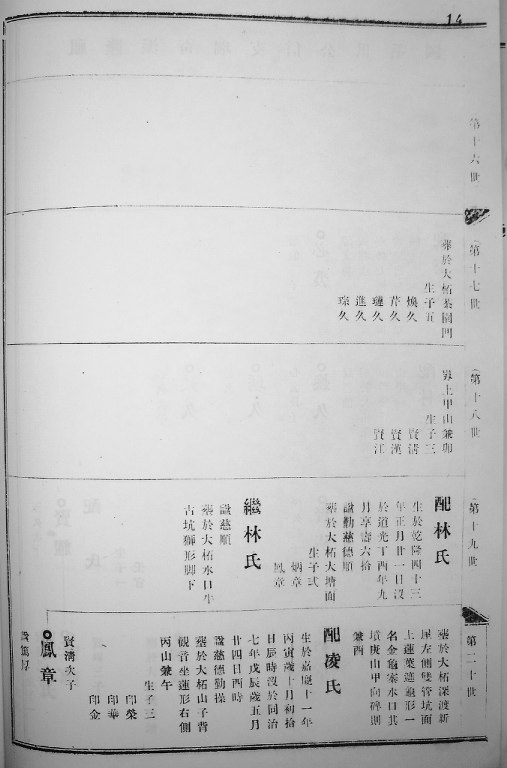 14
第十六世
(第十七世)
塟於大柘茶園門
生子五
煥久
芹久
璉久
進久
琮久
(第十八世)
嶺上甲山兼卯
生子三
資清
資漢
資江
(第十九世)
配林氏
生於乾隆四十三
年正月廿一日沒
於道光丁酉年九
月享壽六拾
諡勤慈德順
塟於大柘大塘面
生子弍
炳章
鳳章
繼林氏
諡慈順
塟於大柘水口牛
古坑獅形脚下
第二十世
塟於大柘深渡新
屋左側雙管坑面
上蓮葉蓮龜形一
名金龜寨水口其
墳庚山甲向碑則
兼酉
配凌氏
生於嘉慶十一年
丙寅歲十月初拾
日辰時沒於同治
七年戊辰歲五月
廿四日酉時
諡慈德勤操
塟於大柘山子背
觀音坐蓮形右側
丙山兼午
生子三
印榮
印華
印金
賢清次子
鳳章
諡篤厚